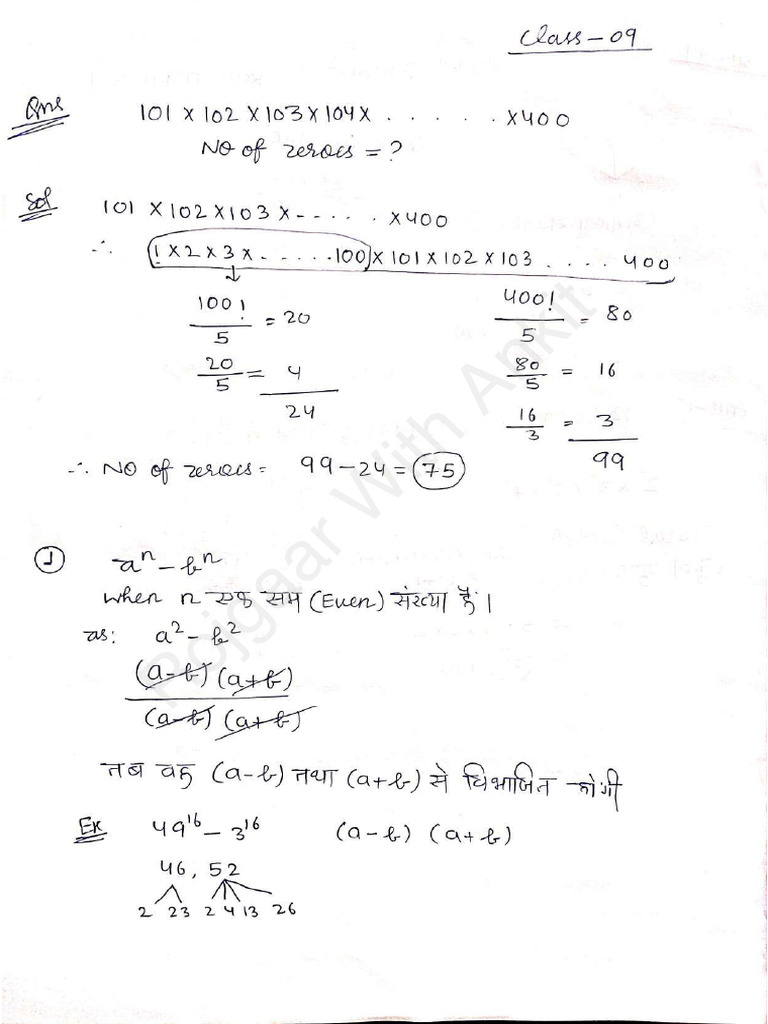 Class-09
Qns 101 x 102 x 103 x 104 x . . . . . . x 400
NO of zeroes = ?
Sol 101 x 102 x 103 x - . . . . x 400
∴ 1 x 2 x 3 x . . . . . . 100 x 101 x 102 x 103 . . . . . 400
100!/5 = 20 400!/5 = 80
20/5 = 4 80/5 = 16
24 16/3 = 3
99
∴ NO of zeroes = 99 - 24 = 75
① aⁿ - bⁿ
when n एक सम (Even) संख्या है।
as: a² - b²
(a-b) (a+b)
(a-b) (a+b)
तब वह (a-b) तथा (a+b) से विभाजित होगी
Ex 49¹⁶ - 3¹⁶ (a-b) (a+b)
46, 52
2 23 2 4 13 26
Rojgaar With Ankit